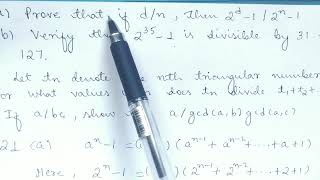 ) Prove that if d/n, then 2^d-1 / 2^n-1
b) Verify 2^35-1 is divisible by 31
127.
Let tn denote nth triangular number
or what values does tn divide t1+t2+.
If a/bc, show a/gcd(a,b)gcd(a,c)
21 (a) a^n-1 = ( ) (a^n-1 + a^n-2 + . . . . + a+1)
Here, 2^n-1 = ( ) (2^n-1 + 2^n-2 + . . . + 2+1)